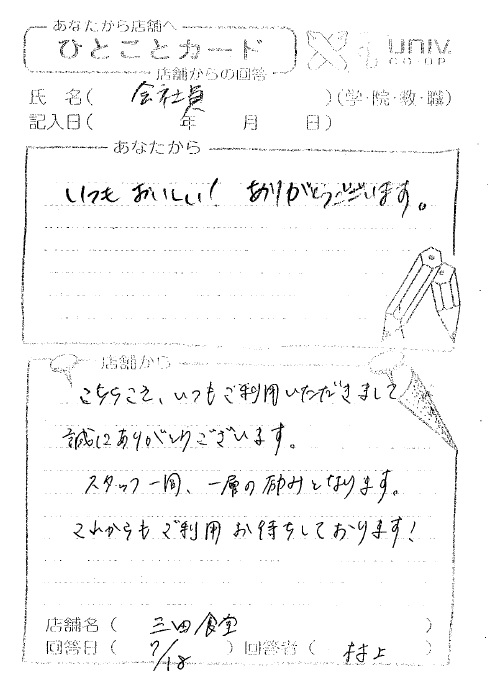 あなたから店舗へ
ひとことカード
店舗からの回答
univ.
CO-OP
氏 名( 会社員 )(学・院・教・職)
記入日( 年 月 日)
あなたから
いつもおいしい! ありがとうございます。
店舗から
こちらこそ、いつもご利用いただきまして
誠にありがとうございます。
スタッフ一同、一層の励みとなります。
これからもご利用お待ちしております!
店舗名( 三田食堂 )
回答日( 7/18 )回答者( 村上 )